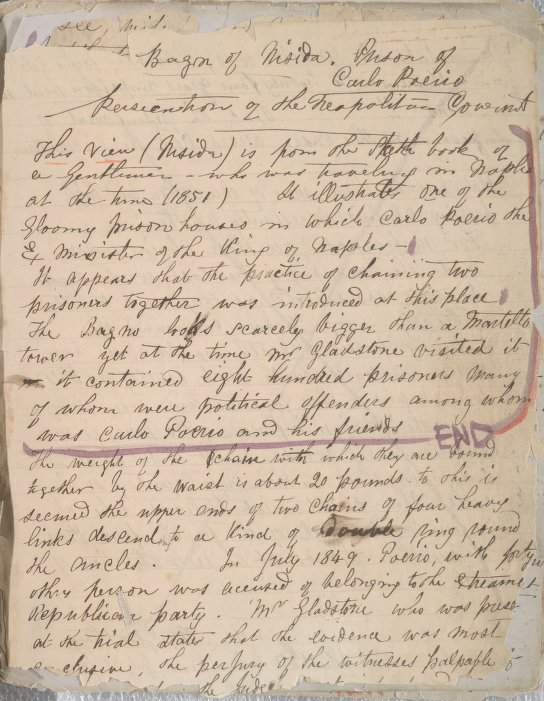 see, mid.
Bagno of Nisida. Prison of
Carlo Poerio
Persecution of the Neapolitan Governt
This View (Nisida) is from the sketch book of
a Gentleman - who was traveling in Naples
at the time (1851) It illustrates one of the
gloomy prison houses in which Carlo Poerio the
Ex Minister of the King of Naples -
It appears that the practice of chaining two
prisoners together was introduced at this place
The Bagno looks scarcely bigger than a Martello
tower yet at the time Mr Gladstone visited it
it contained eight hundred prisoners many
of whom were political offenders among whom
was Carlo Poerio and his friends
END
The weight of the chain with which they are bound
together by the waist is about 20 pounds. to this is
secured the upper ends of two chains of four heavy
links descending to a kind of double ring round
the ancles. In July 1849. Poerio, with forty
other person was accused of belonging to the Extreame
Republican party. Mr Gladstone who was prest
at the trial states that the evidence was most
inclusive. the perjury of the witnesses palpable
the Judge